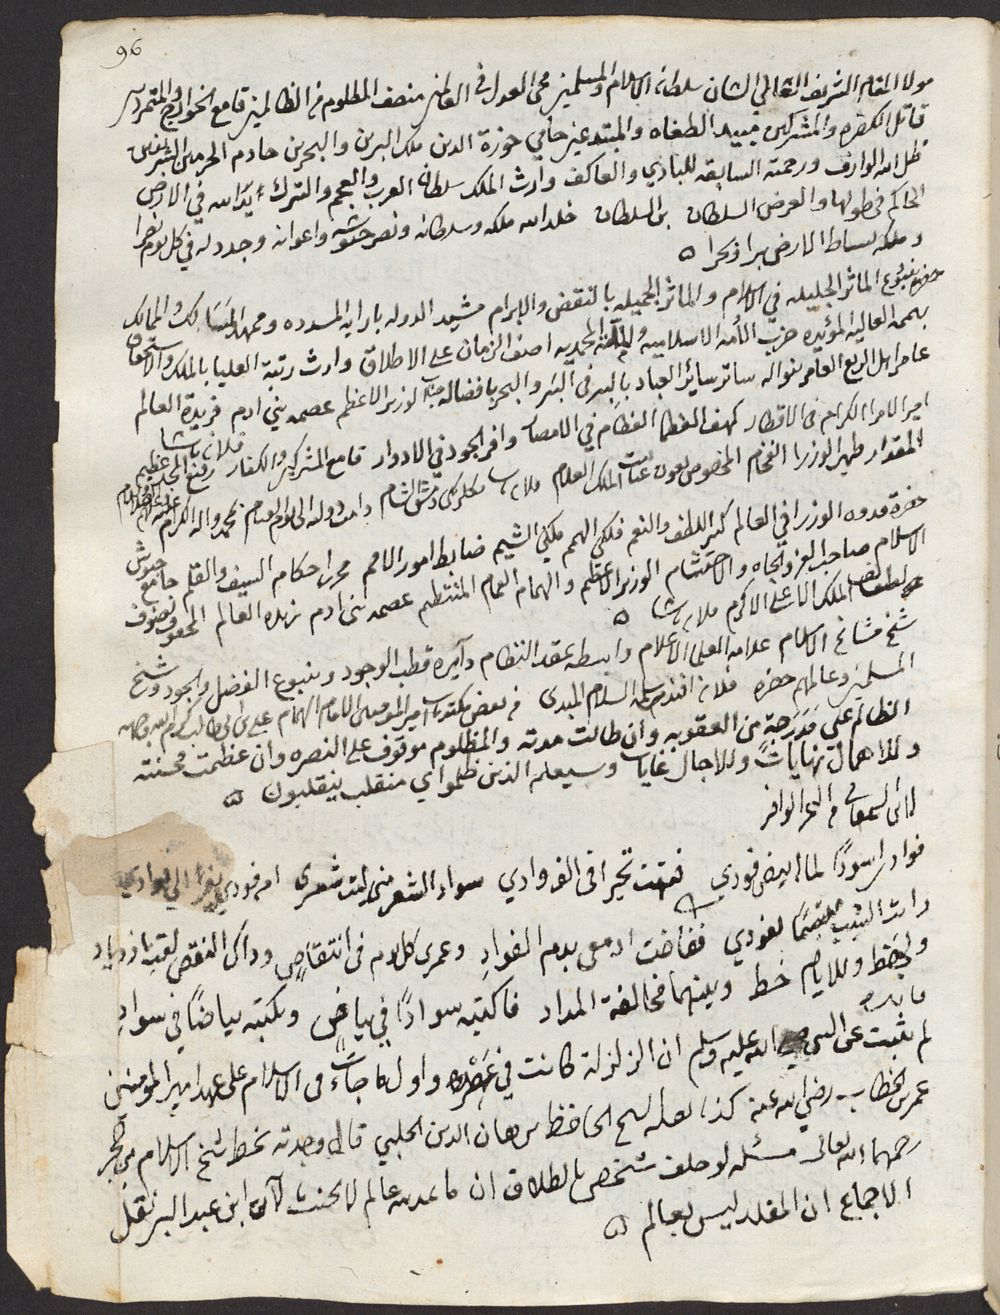 96
مولانا المقام الشريف العالي الشان سلطان الاسلام والمسلمين محي العدل في العالمين منصف المظلوم من الظالمين قامع الخوارج والمتمردين
قاتل الكفره والمشركين مبيد الطغاه والمبتدعين حامي حوزة الدين ملك البرين والبحرين خادم الحرمين الشريفين
ظل الله الوارف ورحمته السابقه للبادي والعاكف وارث الملك سلطان العرب والعجم والترك ايد الله في الارض
الحاكم في طولها والعرض السلطان بن السلطان خلد الله ملكه وسلطانه ونصر جيوشه واعوانه وجدد له في كل يوم نصرا
وملكه بساط الارض برا وبحرا ٥
حضرة ينبوع الماثر الجليله في الاسلام والماثر الجميله بالنقض والابرام مشيد الدوله بارايه المسدده وممهد المسالك والممالك
بهممه العاليه المؤيده حزب الأمه الاسلاميه والملة المحمديه اصف الزمان على الاطلاق وارث رتبة العليا بالملك والاستحقاق
عامر اهل الربع العامر بنواله ساتر سائر العباد بالبر في البر والبحر بافضاله جناب الوزير الاعظم عصمه بني ادم فريدة العالم
فلان باشا
امير الامرا الكرام في الاقطار كهف العظما الفخام في الامصار وافر الجود في الادوار قامع المشركين والكفار رفيع المجد عظيم
المقدار ظهير الوزرا الفخام المخصوص بعون عنايت الملك العلام فلان بكلربكي دمشق الشام دامت دولته الى يوم القيام بمحمد واله الكرام
حضرة قدوه الوزرا في العالم كثير اللطف والنعم فلكي الهمم ملكي الشيم ضابط امور الامم محرر احكام السيف والقلم جامع جيوش
الاسلام صاحب العز والجاه والاحتشام الوزير الاعظم والهمام المنتظم عصمه بني ادم زبده العالم المحفوف بصنوف
لطف الملك الاعلى الاكرم فلان باشا ٥
شيخ مشائخ الاسلام علامه العلما الاعلام واسطه عقد النظام دايره قطب الوجود وينبوع الفضل والجود وشيخ
المسلمين وعالمهم حضره فلان افندي السلام المبدى من بعض مكتوبات امير المومنين الامام الهمام علي بن ابي طالب كرم الله وجهه
الظالم على مدرجة من العقوبه وان طالت مدته والمظلوم موقوف على النصره وان عظمت محنته
وللاهمال نهايات وللاجال غايات وسيعلم الذين ظلموا اي منقلب ينقلبون ٥
لابي السعود في البحر الوافر
فوادي اسودا لما ابيض فودي فتهت تحيرا في الفوادي سواد الشعر ليت شعري ام فودي الى فوادي
رايت الشيب مبتسما لفودي ففاضت ادمعي بدم الفواد وعمري كل يوم في انتقاص وذاك النقص لقب ازدياد
ولي خط وللايام خط وبينهما مخالفة المداد فاكتبه سوادا في بياض وتكتبه بياضا في سواد
فايده
لم يثبت عن النبي صلى الله عليه وسلم ان الزلزلة كانت في عصره واول ما جات في الاسلام على عهد امير المومنين
عمر بن الخطاب رضي الله عنه كذا نقله الشيخ الحافظ برهان الدين الحلبي قال وجدته بخط شيخ الاسلام بن حجر
رحمهما الله تعالى مسئله لو حلف شخص بالطلاق ان ما عدله عالم لا يحنث لان ابن عبد البر نقل
الاجماع ان المقلد ليس بعالم ٥